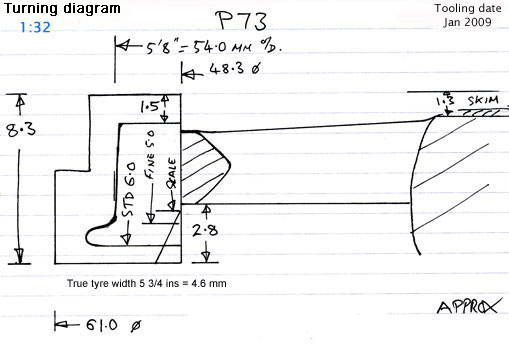 Turning diagram
1:32
P73
Tooling date
Jan 2009
5'8" = 54.0 MM O/D.
48.3 Ø
1.5
1.3 SKIM
8.3
STD 6.0
FINE 5.0
SCALE
2.8
True tyre width 5 3/4 ins = 4.6 mm
61.0 Ø
APPROX